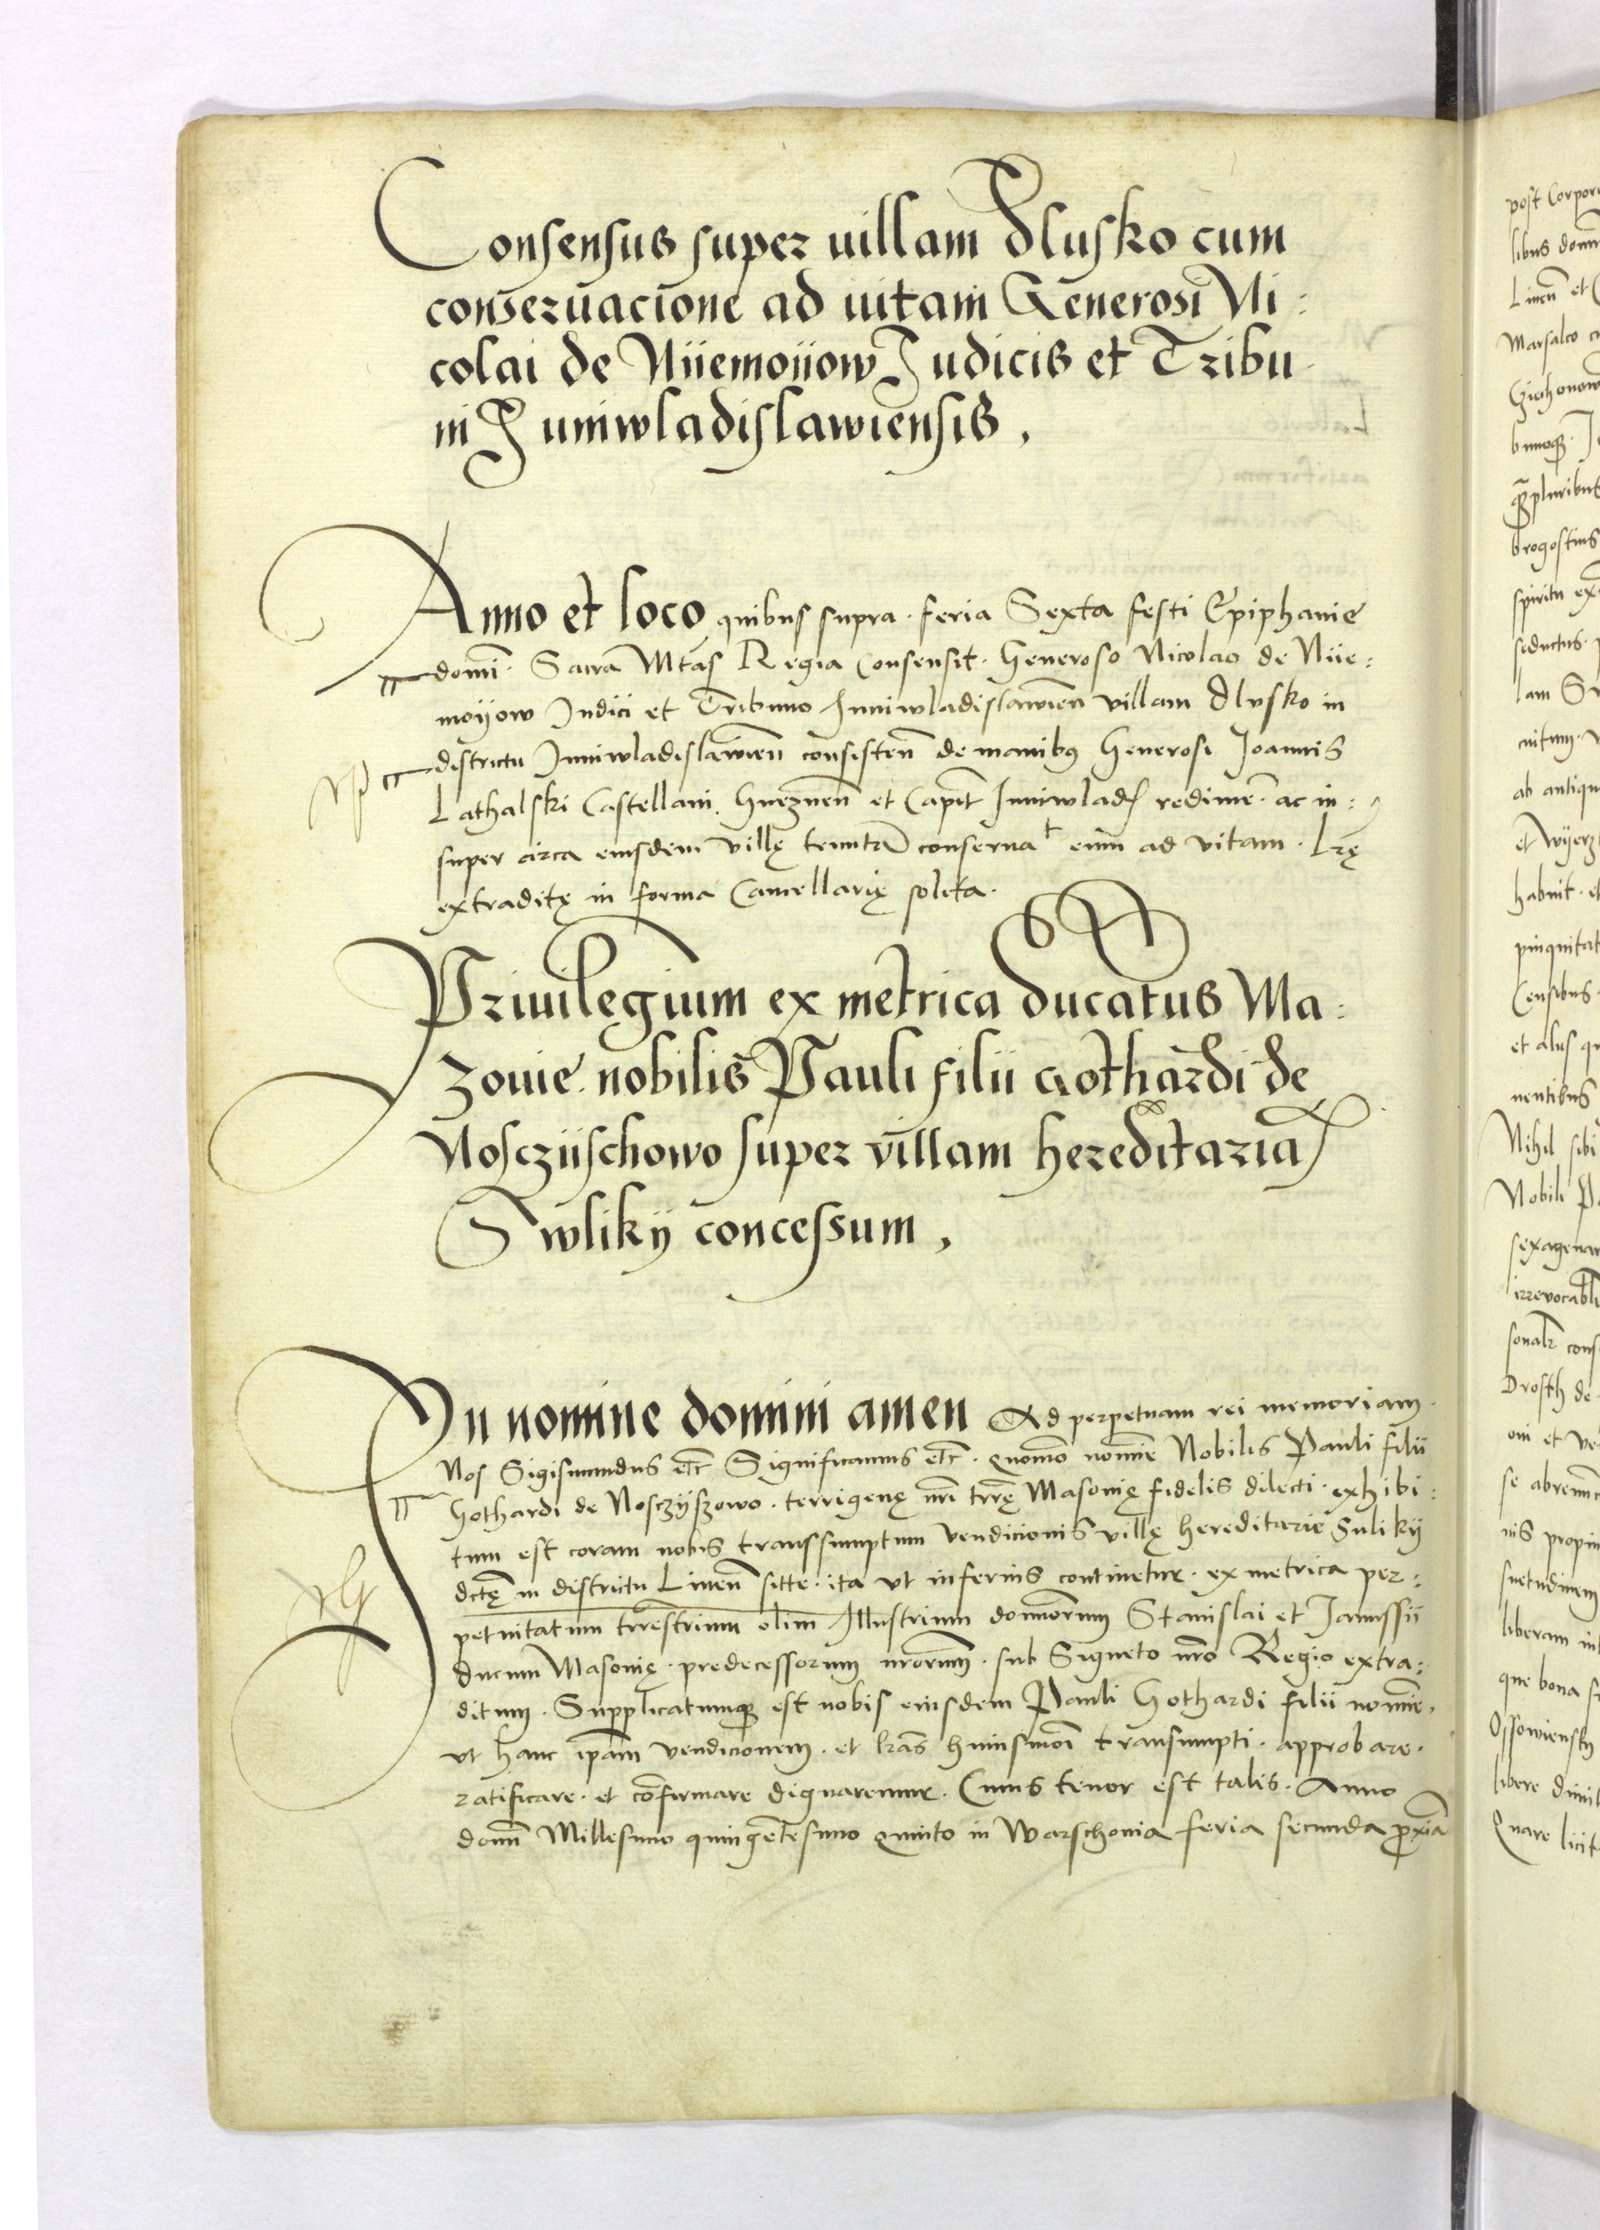 Consensus super villam Dlusko cum
conservacione ad vitam Generosi Ni:
colai de Niiemoiiow Iudicis et Tribu
ni Iuniwladislawiensis,
Anno et loco quibus supra. feria Sexta festi Epiphanie
domī. Sacra Mtas Regia Consensit. Generoso Nicolao de Nije:
moÿow Iudici et Tribuno Iuniwladislawien̄ villam Dlusko in
districtu Iuniwladislawien̄ consisten̄ de manibus Generosi Joannis
Lathalski Castellani Gneznen̄ et Capit̄ Iuniwlad redime. ac in:
super circa eiusdem villę tentam conserva eum ad vitam. Lrę
extraditę in forma Cancellarię solita.
Privilegium ex metrica ducatus Ma:
zovie nobilis Pauli filii Gothardi de
Nosczÿschowo super villam hereditaria
Swlikÿ concessum,
In nomine domini amen Ad perpetuam rei memoriam.
Nos Sigismundus etc̄ Significamus etc̄. quomo nomine Nobilis Pauli filii
Gothardi de Nosczÿszowo. terrigenę nr̄i tr̄rę Masovię fidelis dilecti. exhibi:
tum est coram nobis transsumptum vendicionis villę hereditarie Sulikÿ
dc̄tę in districtu Liwen̄ sitte. ita ut inferius continetur. ex metrica per:
petuitatum trrestrium olim Illustrium dominorum Stanislai et Janussii
ducum Masovię. predecessorum nrorum. sub Signeto nr̄o Regio extra:
ditum. Supplicatumq est nobis eiusdem Pauli Gothardi filii nomine,
ut hanc ip̄am vendicionem. et lr̄as huiusmoi transumpti. approbare.
ratificare. et cōfirmare dignaremur. Cuius tenor est talis. Anno
domī Millesimo quingētesimo quinto in Warschovia feria secunda p̄xia